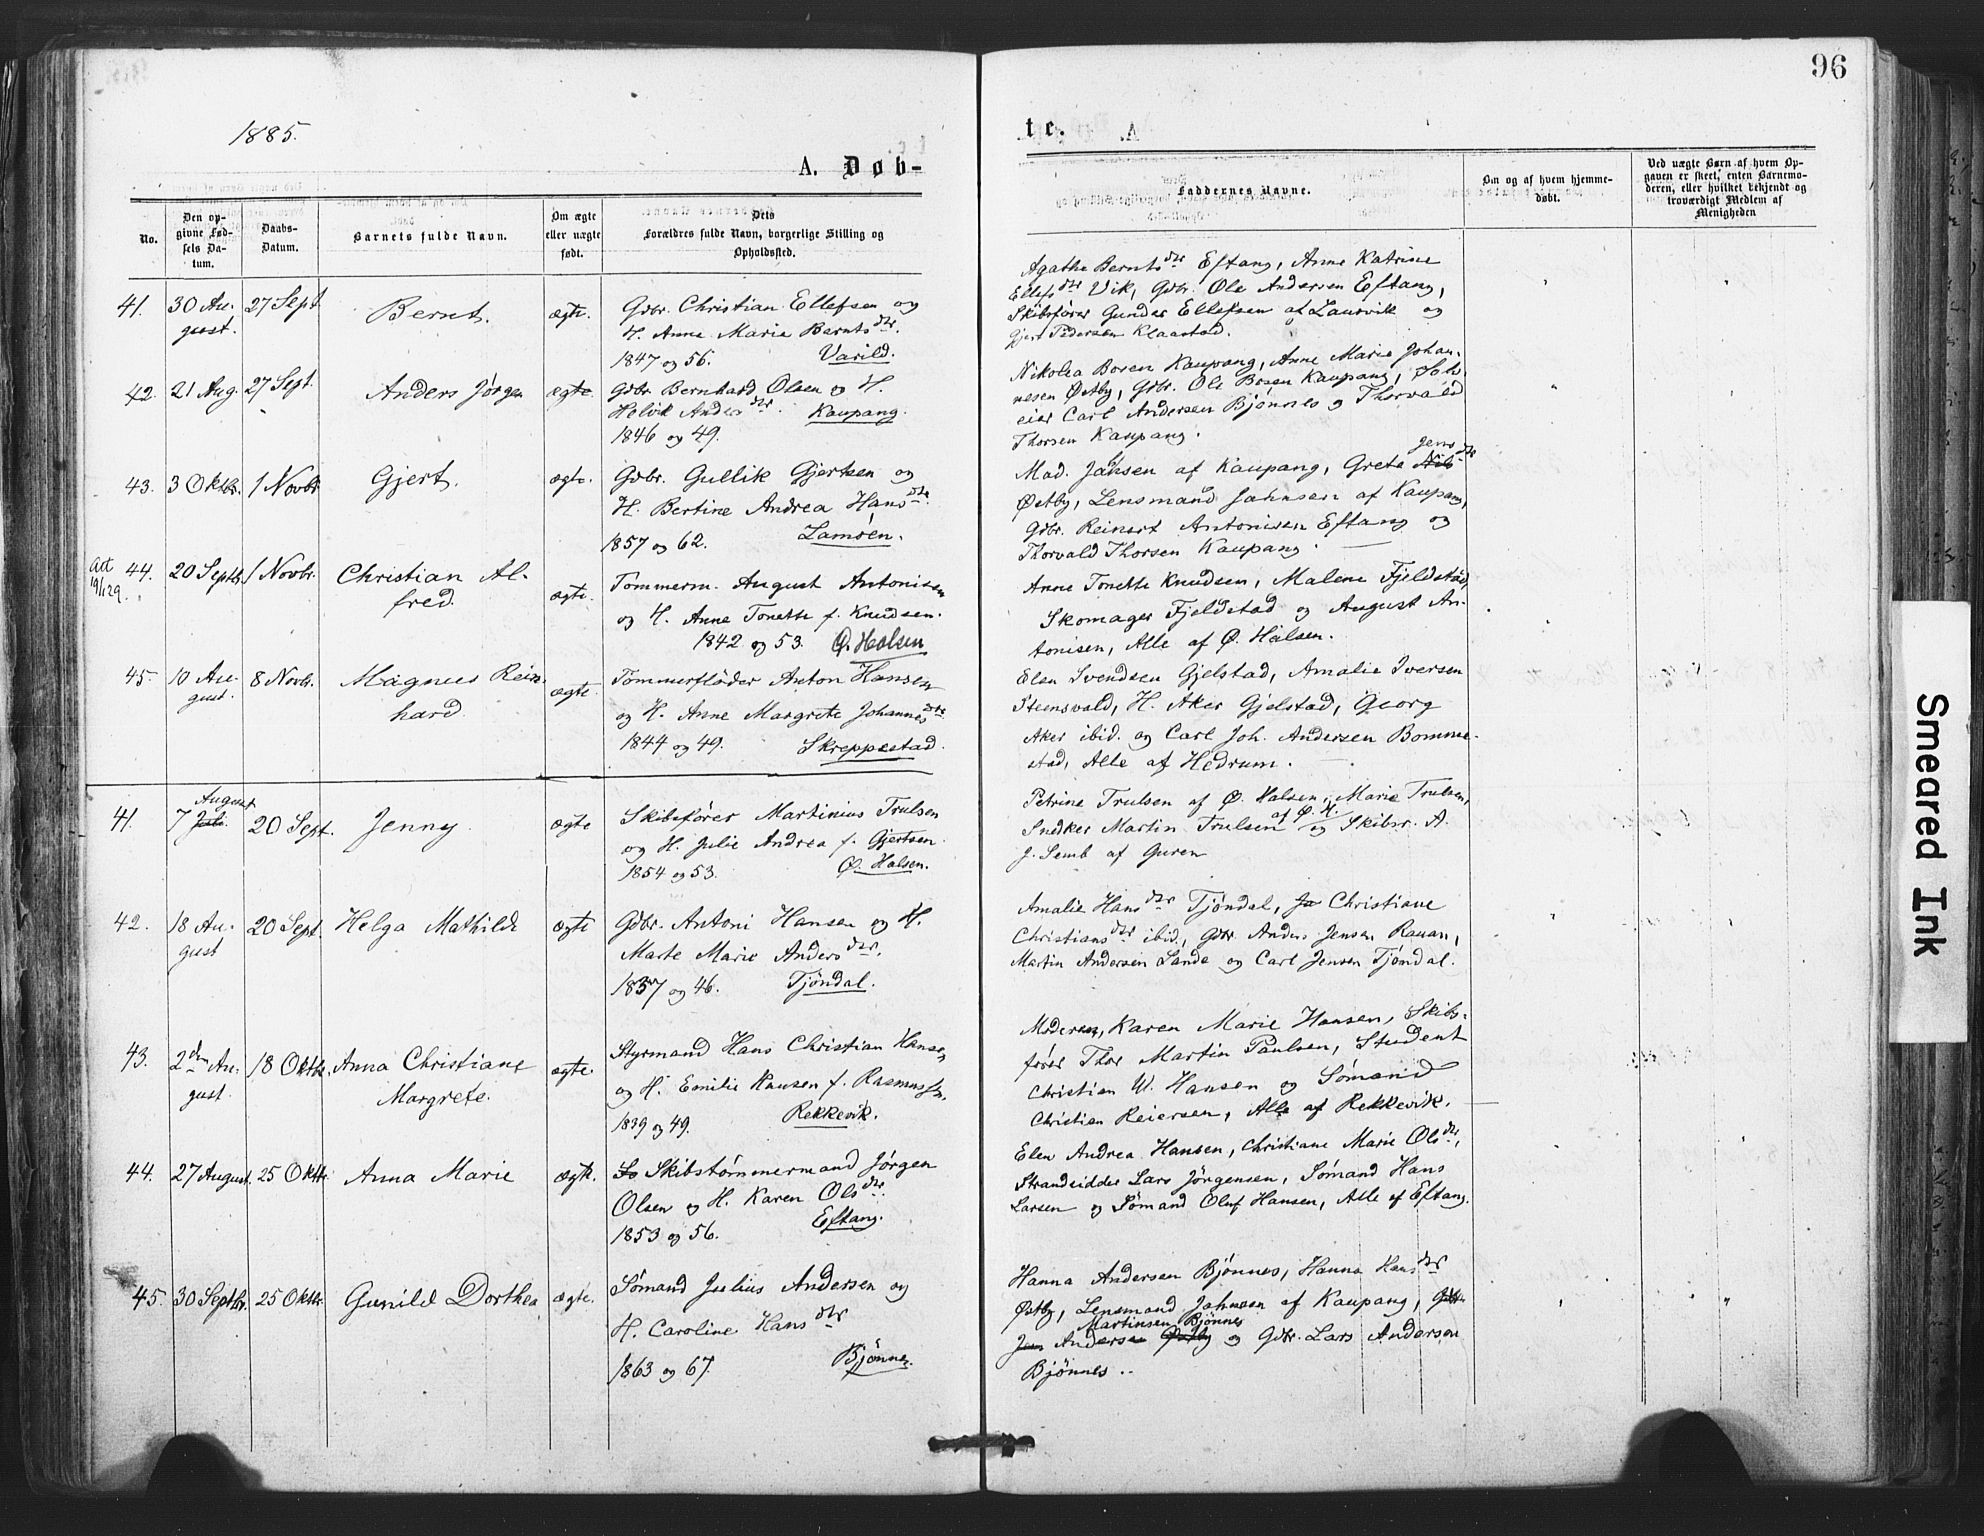 1885.
A. Døb-
No.
Den op-
givne Fød-
sels Da-
tum.
Daabs-
Datum.
Barnets fulde Navn.
Om ægte
eller uægte
født.
Dets
Forældres fulde Navn, borgerlige Stilling og
Opholdssted.
41. 30 Au-
gust. 27 Sept Bernt. ægte. Gdbr. Christian Ellefsen og
H. Anne Marie Bernts dtr.
1847 og 56. Varild.
42. 21 Aug. 27 Sept. Anders Jørgen ægte. Gdbr Bernhard Olsen og H.
Anders dtr. Kaupang.
1846 og 49.
43. 3 Oktbr. 1 Novbr Gjert. ægte. Gdbr. Gullik Gjertsen og
H. Bertine Andrea Hans dtr.
1857 og 62. Lamøen.
Att
19/1 29.
44. 20 Septbr. 1 Novbr. Christian Al-
fred. ægte. Tømmerm. August Antonisen
og H. Anne Tonette f. Knudsen.
1842 og 53. Ø. Halsen
45 10 Au-
gust. 8 Novbr. Magnus Rein-
hard. ægte. Tømmerfløder Anton Hansen
og H. Anne Margrete Johannes dtr
1844 og 49. Skreppestad.
41. August
7 Juli. 20 Sept. Jenny. ægte Skibsfører Martinius Trulsen
og H. Julie Andrea f. Gjertsen.
1854 og 53. Ø. Halsen.
42. 18 Au-
gust 20 Sept. Helga Mathilde ægte Gdbr. Antoni Hansen og H.
Marte Marie Anders dtr.
1837 og 46. Tjöndal.
43. 2 den Au-
gust. 18 Oktbr. Anna Christiane
Margrete. ægte. Styrmand Hans Christian Hansen
og H. Emilie Hansen f. Rasmussen.
1839 og 49. Rekkevik.
44. 27 August. 25 Oktbr. Anna Marie ægte. Skibstømmermand Jørgen
Olsen og H. Karen Ols dtr.
1853 og 56. Eftang.
45. 30 Septbr. 25 Oktbr. Gunild Dorthea ægte. Sømand Julius Andersen og
H. Caroline Hans dtr
1863 og 67. Bjönnes.
96
te.
Faddernes Navne.
Om og af hvem hjemme-
døbt.
Ved uægte Børn af hvem Op-
gaven er skeet, enten Barnemo-
deren, eller hvilket bekjendt og
troværdigt Medlem af
Menigheden
Agathe Bernts dtr Eftang, Anne Katrine
Ellefs dtr Vik, Gdbr. Ole Andersen Eftang,
Skibsfører Gunder Ellefsen af Laurvik og
Gjert Pedersen Klaastad.
Nikolea Boresen Kaupang, Anne Marie Johan-
nesen Østby, Gdbr. Ole Bosen Kaupang,
eier Carl Andersen Bjønnes og Thorvald
Thorsen Kaupang.
Mad. Jahnsen af Kaupang, Grete Jens dtr
Østby, Lensmand Jahnsen af Kaupang,
Gdbr. Reinert Antonisen Eftang og
Thorvald Thorsen Kaupang.
Anne Tonette Knudsen, Malene Fjeldstad,
Skomager Fjeldstad og August An-
tonisen, Alle af Ø. Halsen.
Elen Svendsen Gjelstad, Amalie Iversen
Steensvald, H. Aker Gjelstad, Georg
Aker ibid. og Carl Joh. Andersen Bomme-
stad, Alle af Hedrum.
Petrine Trulsen af Ø. Halsen, Marie Trulsen,
Snedker Martin Trulsen af Ø. H. og Skibsr. A.
J. Semb af Guren
Amalie Hans dtr Tjöndal, Christiane
Christians dtr ibid., Gdbr Anders Jensen Rauan,
Martin Andersen Lande og Carl Jensen Tjöndal.
Moderen, Karen Marie Hansen, Skibs-
fører Thor Martin Paulsen, Student
Christian W. Hansen og Sömand
Christian Reiersen, Alle af Rekkevik.
Elen Andrea Hansen, Christiane Marie Ols dtr,
Strandsidder Lars Jörgensen, Sömand Hans
Larsen og Sömand Oluf Hansen, Alle af Eftang.
Hanna Andersen Bjönnes, Hanna Hans dtr
Østby, Lensmand Jahnsen af Kaupang,
Martinsen Bjönnes
Anders Østby og Gdbr. Lars Andersen
Bjönnes..
Smeared Ink